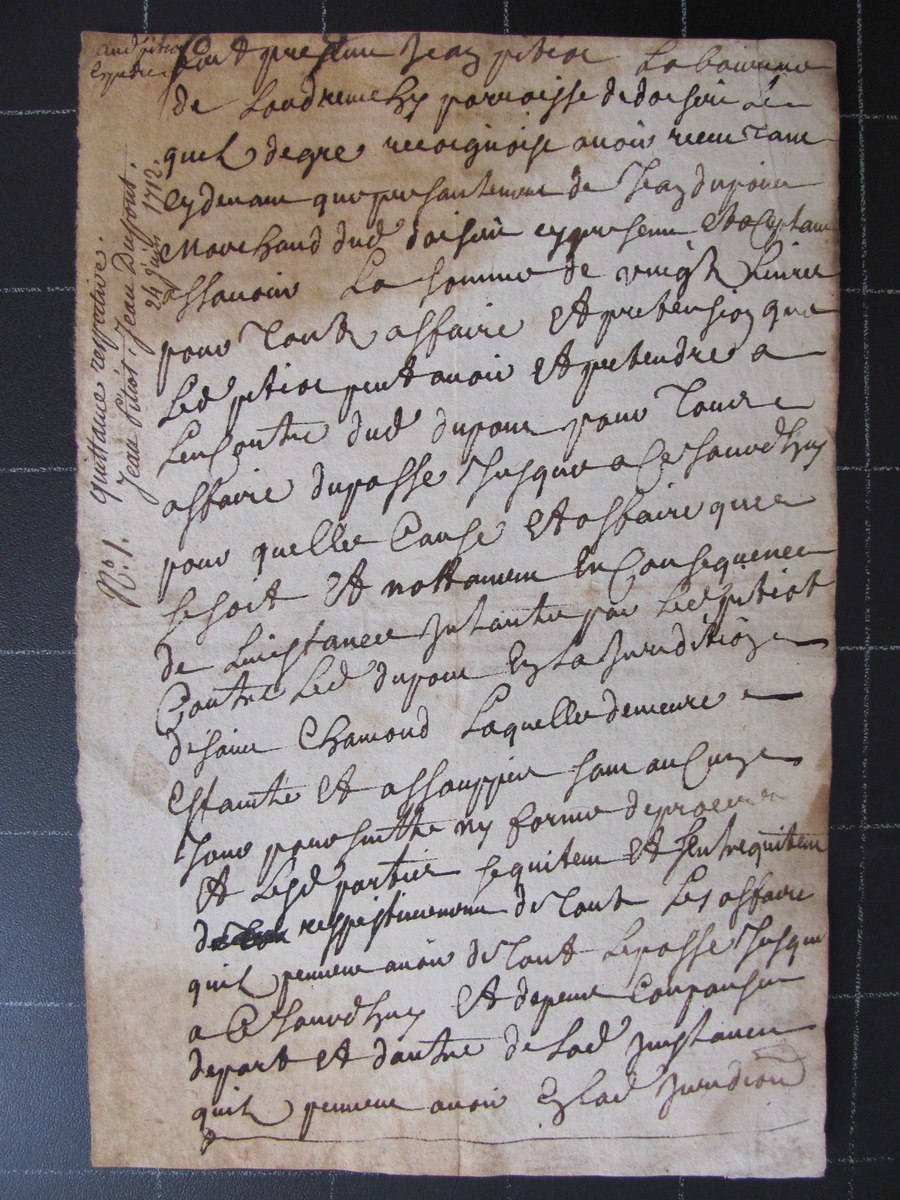 Jean pitiot Laboureur
de Laudremethy parroisse de doisieu
quel degre recoignoise avoir receu
cydevant que presantement de Jean dupont
Marchand dud doisieu cy presenu et aCeptant
assavoir La somme de vingt Livres
pour toute affaire et pretension que
Led pitiot peut avoir et pretendre a
Lencontre dud dupont pour toute
affaire du passe Jusque a Ce Jourdhuy
pour quelle Cause et affaire que
se soit et nottamen En Consequence
de Linstance Intante par Led pitiot
Contre Led dupont En La Juriditión
de saint Chamond Laquelle demeure
Estainte et assouppie sans aucune
poursuitte ny forme de proces
et Lesd partie se quitent et sentrequitent
respectivement de tout Les affaire
quil peuvent avoir de tout Le passe Jusque
a Ce Jourdhuy et depens Compansez
de part et dautre de Lad Instance
quil peuvent avoir En Lad Juridion
No 1. quittance respective.
Jean Pitiot. Jean Dupont.
24 Juin 1712.